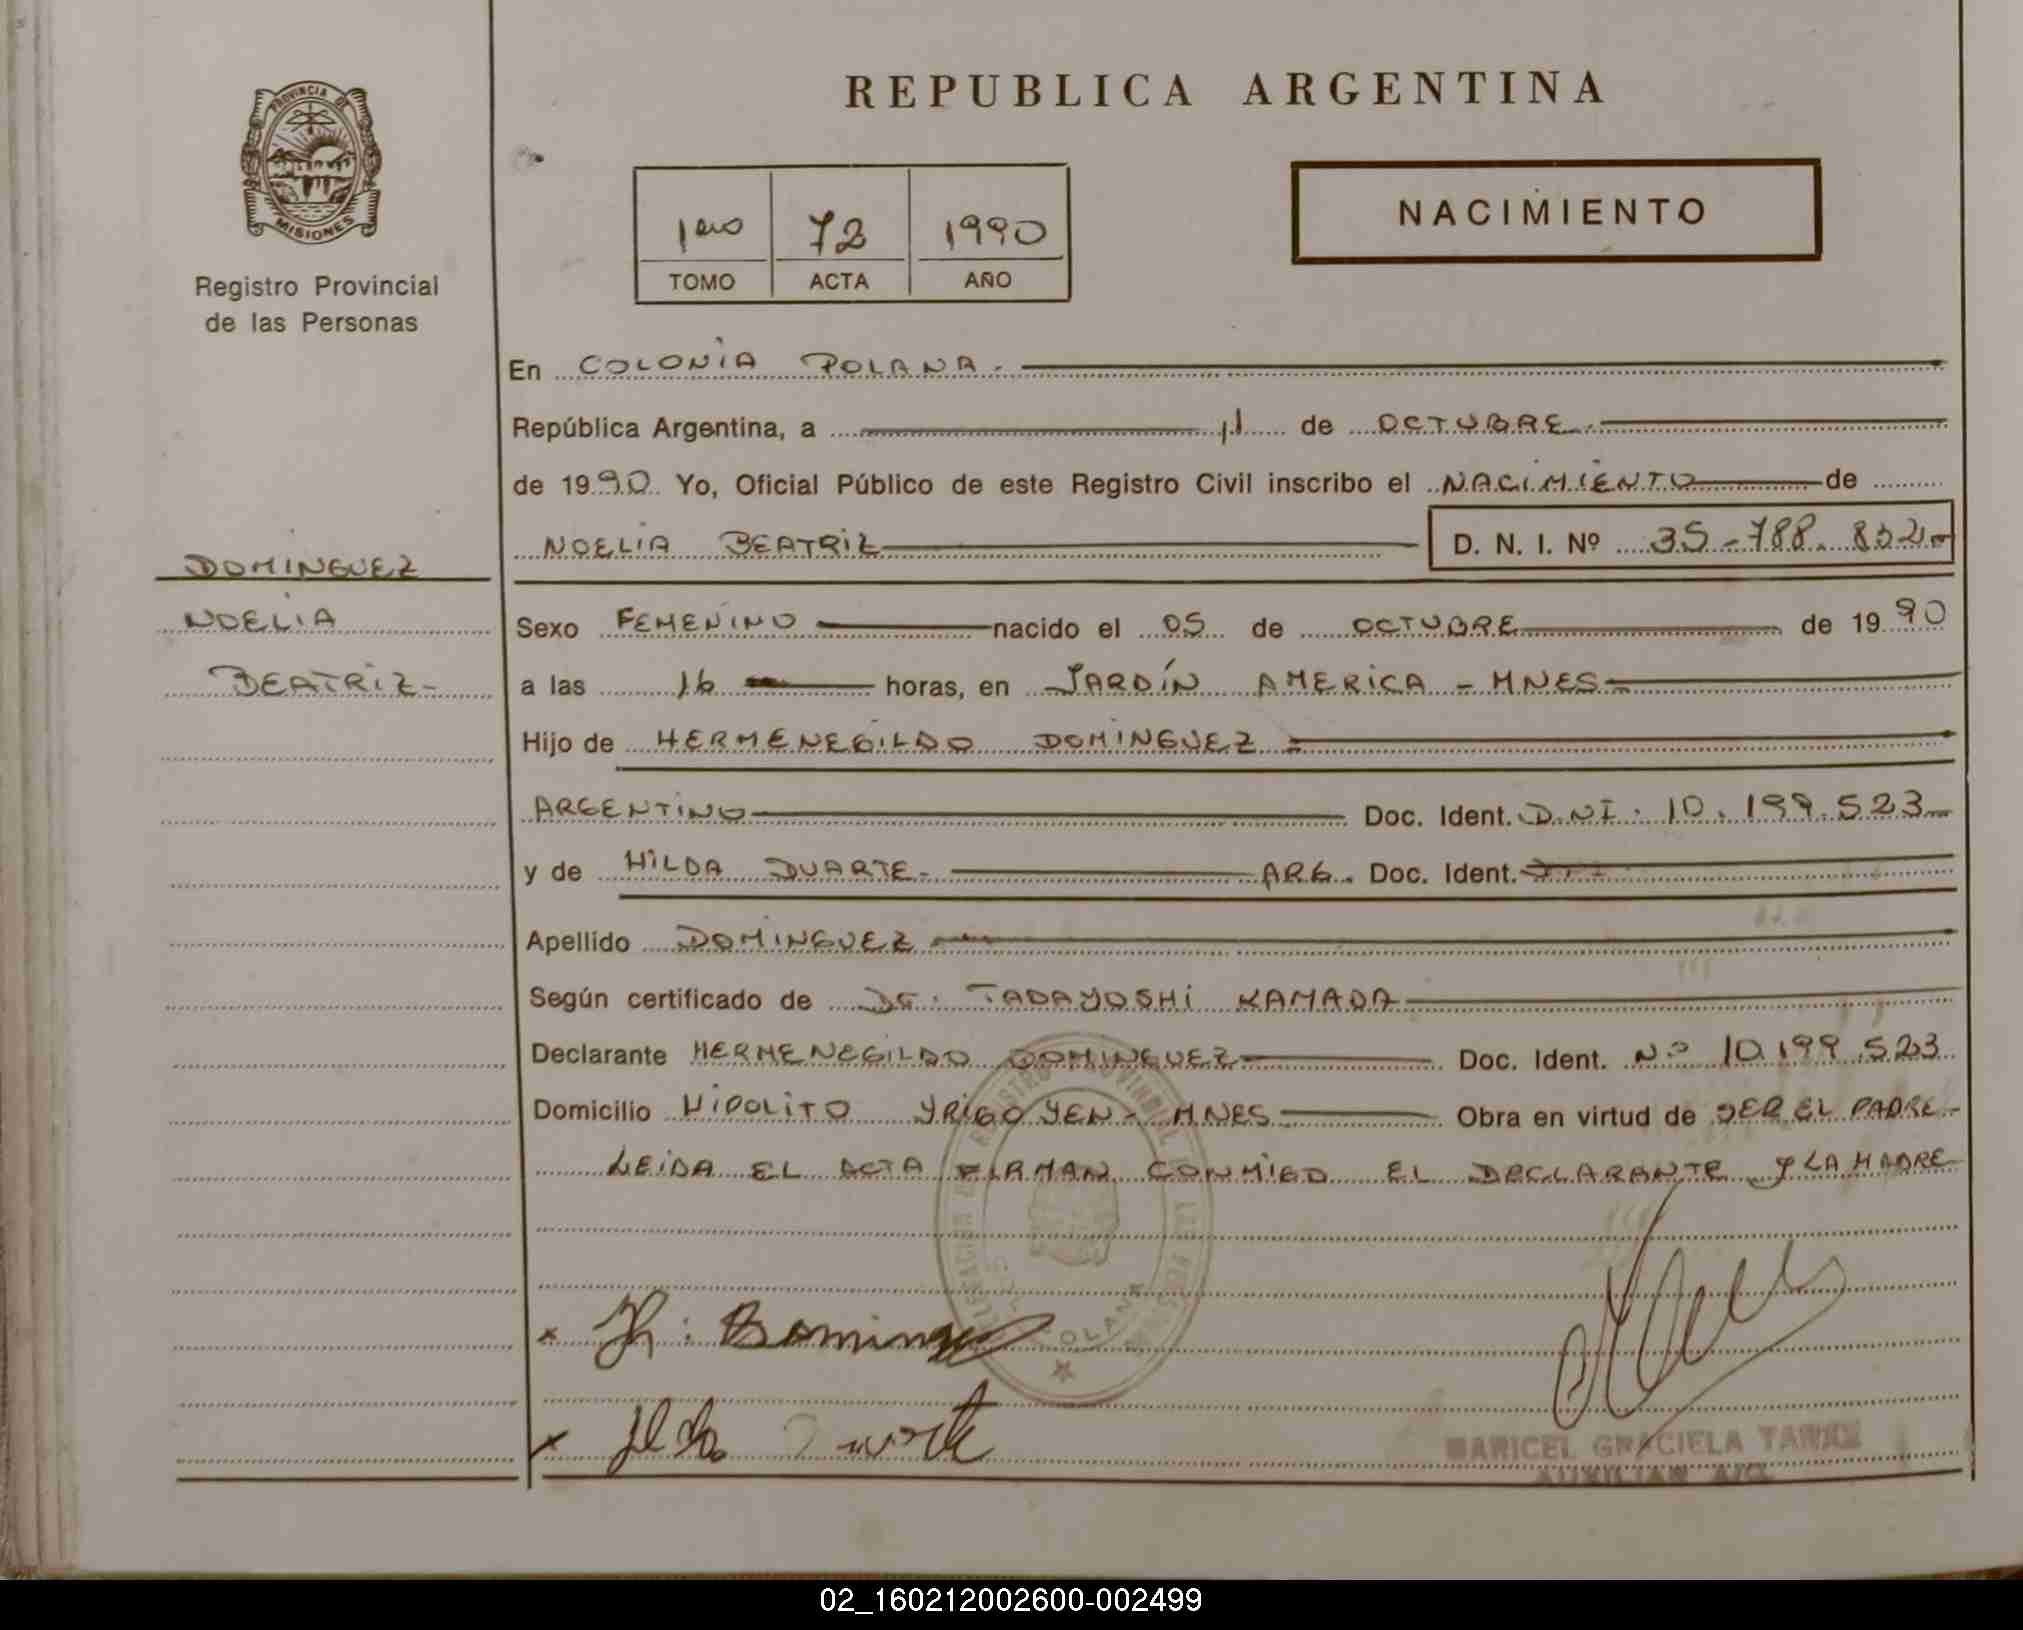 PROVINCIA DE
MISIONES
Registro Provincial
de las Personas
REPUBLICA ARGENTINA
1ero 72 1990
TOMO ACTA AÑO
NACIMIENTO
En COLONIA POLANA.
República Argentina, a 11 de OCTUBRE
de 1990 Yo, Oficial Público de este Registro Civil inscribo el NACIMIENTO de
NOELIA BEATRIZ D. N. I. Nº 35-788.832-
DOMINGUEZ
NOELIA
BEATRIZ-
Sexo FEMENINO nacido el 05 de OCTUBRE de 1990
a las 16 horas, en JARDÍN AMERICA - MNES-
Hijo de HERMENEGILDO DOMINGUEZ
ARGENTINO Doc. Ident. D.NI. 10.199.523
y de HILDA DUARTE- ARG. Doc. Ident.
Apellido DOMINGUEZ
Según certificado de Dr. TADAYOSHI KAMADA
Declarante HERMENEGILDO DOMINGUEZ Doc. Ident. Nº 10.199.523
Domicilio HIPOLITO YRIGOYEN- MNES Obra en virtud de SER EL PADRE-
LEIDA EL ACTA FIRMAN CONMIGO EL DECLARANTE Y LA MADRE
REGISTRO PROVINCIAL DE LAS
POLANA
H: Dominguez
Hilda Duarte
MARICEL GRACIELA
AUXILIAR
02_160212002600-002499